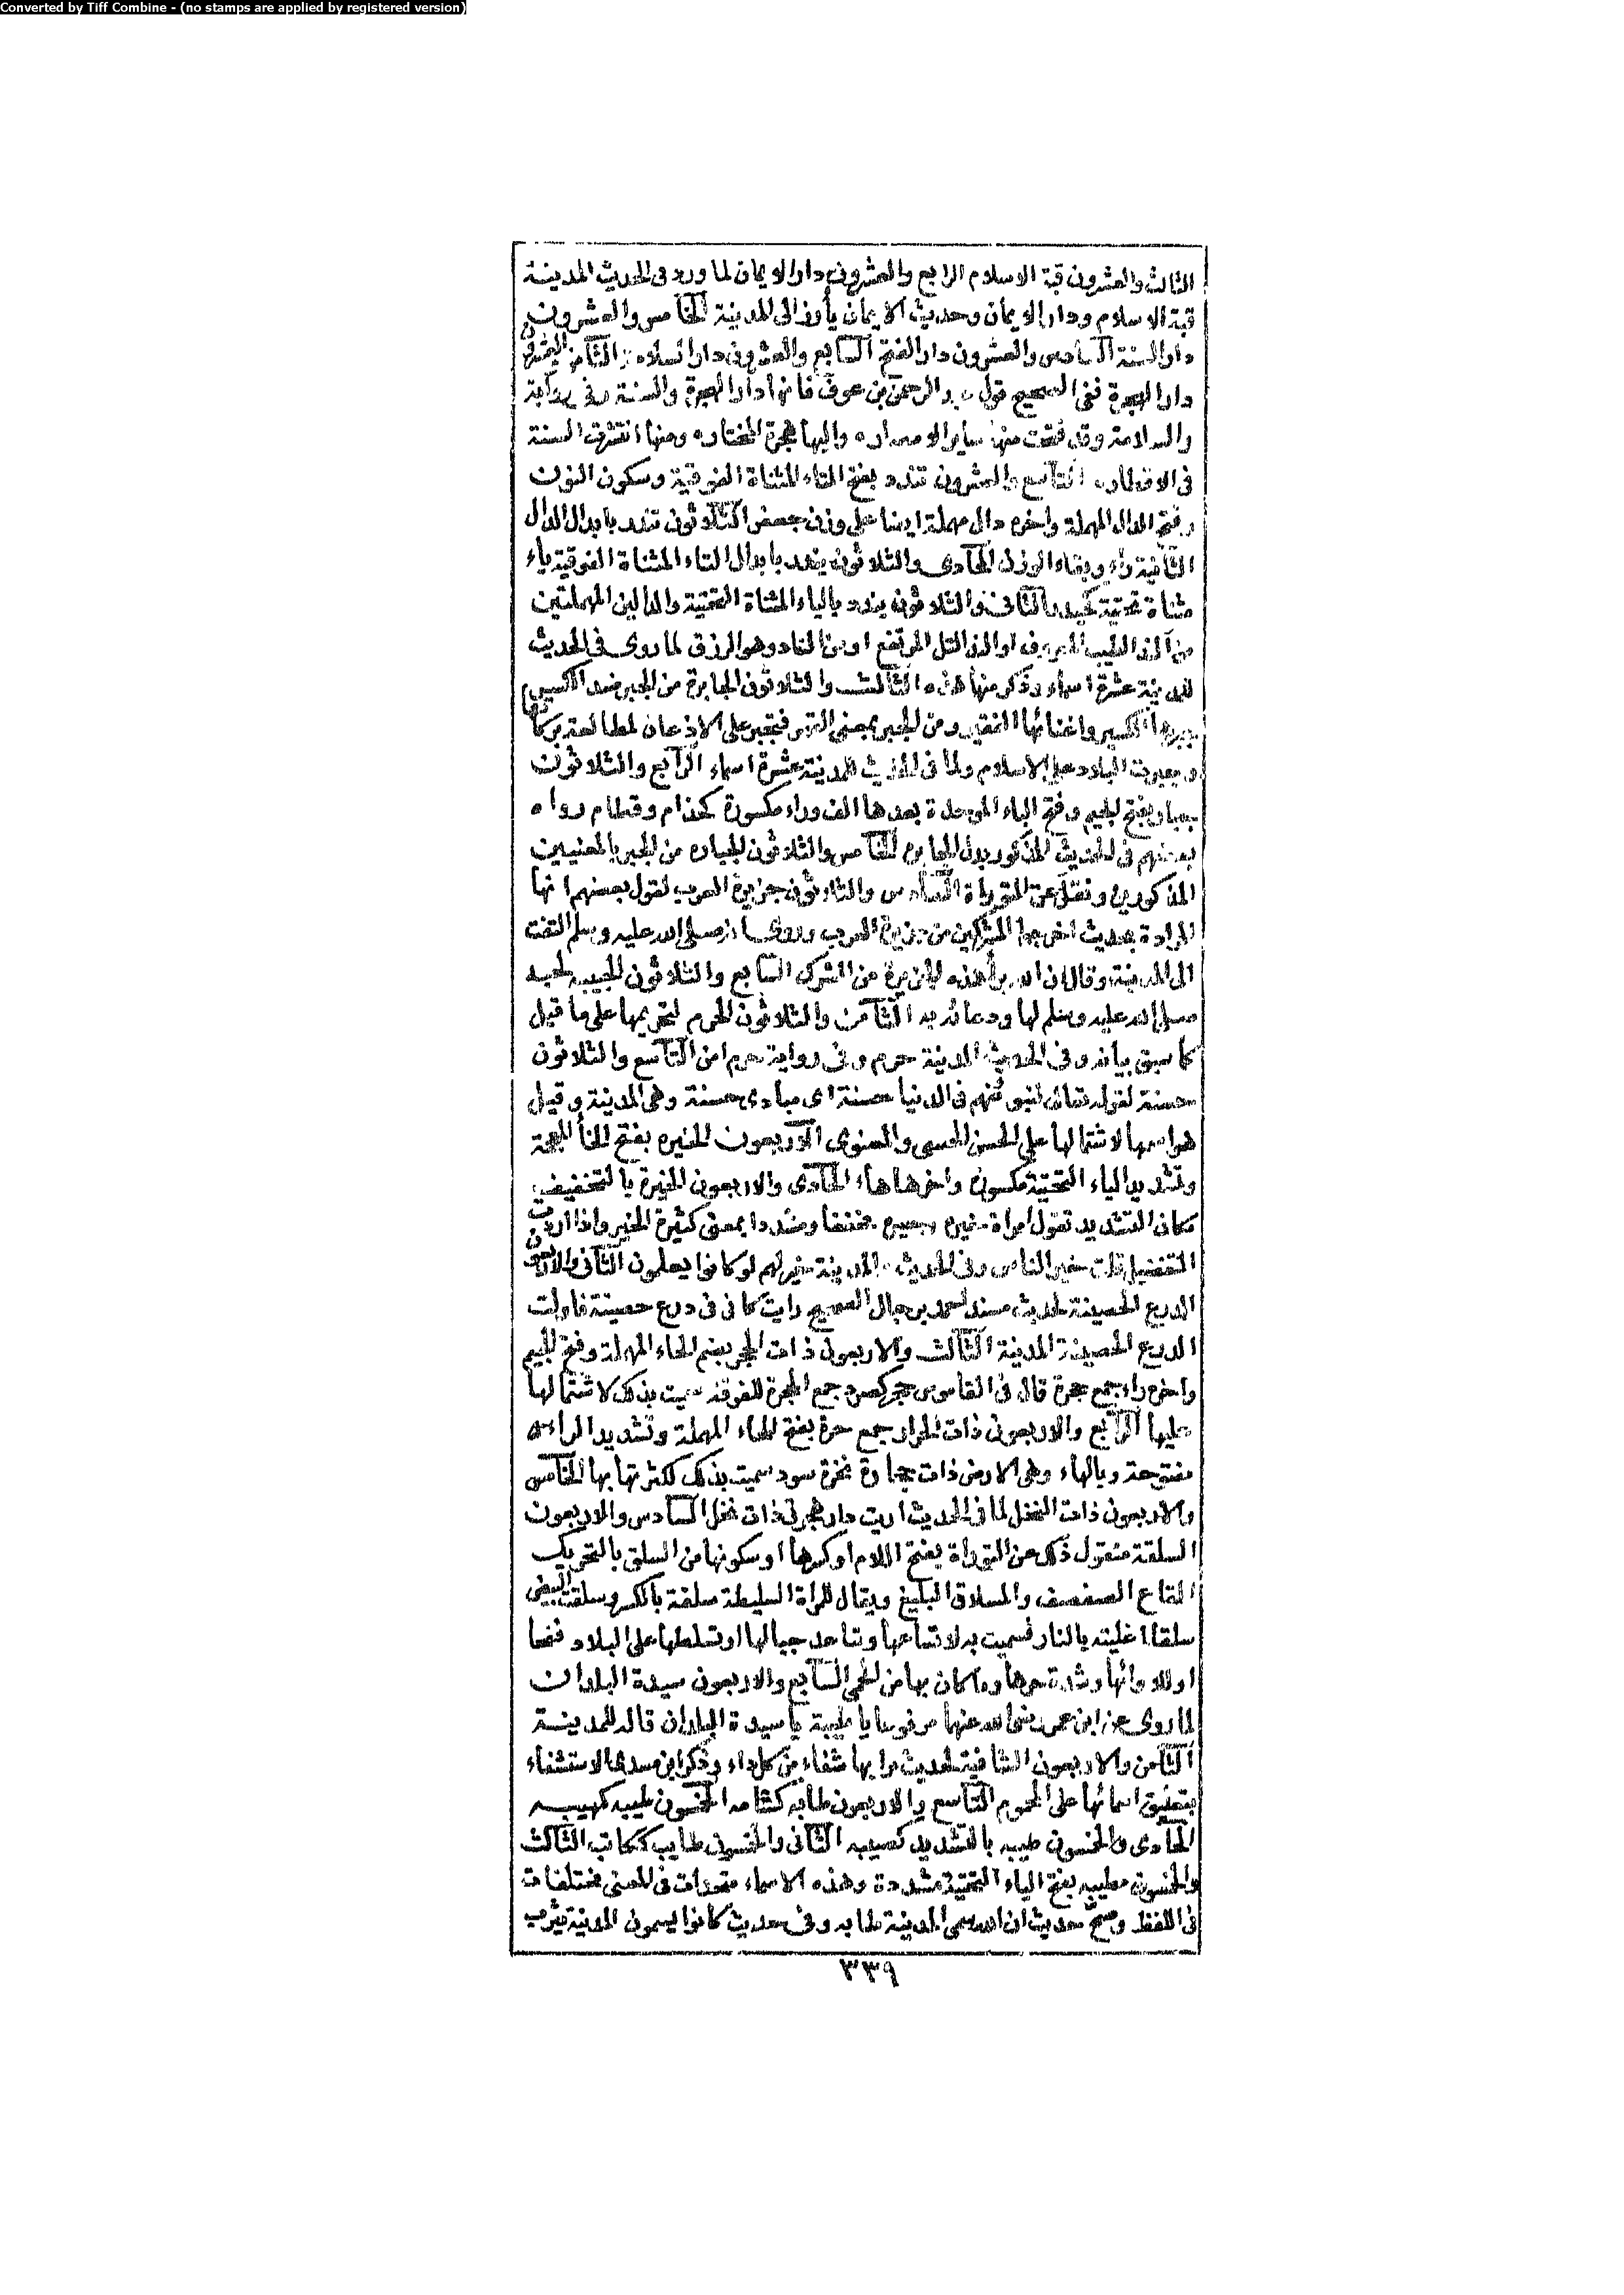 Converted by Tiff Combine - (no stamps are applied by registered version)
الثالث والعشرون قبة الاسلام الرابع والعشرون دار الايمان لما ورد فى الحديث المدينة
قبة الاسلام ودار الايمان وحديث الايمان يأرز الى المدينة الخامس والعشرون
دار السنة السادس والعشرون دار الفتح السابع والعشرون دار السلامة الثامن والعشرون
دار الهجرة ففى الصحيح قول عبد الرحمن بن عوف فانها دار الهجرة والسنة وفى رواية
والسلامة وقد فتحت منها ساير الامصار واليها هجرة المختار ومنها انتشرت السنة
فى الاقطار التاسع والعشرون تندد بفتح التاء المثناة الفوقية وسكون النون
وفتح الدال المهملة واخره دال مهملة ايضا على وزن جعفر الثلاثون تندر بابدال الدال
الثانية راء وبقاء الوزن الحادى والثلاثون يندر بابدال التاء المثناة الفوقية ياء
مثناة تحتية كحيدر الثانى والثلاثون يندد بالياء المثناة التحتية والدالين المهملتين
من الند الطيب المعروف او الند التل المرتفع او من الناد وهو الرزق لما روى فى الحديث
للمدينة عشرة اسماء وذكر منها هذه الثالث والثلاثون الجابرة من الجبر ضد الكسر
بجبرها الكسير واغنائها الفقير ومن الجبر بمعنى القهر فتجبر على الاذعان لمطالعة بركاتها
وجبرت البلاد على الاسلام ولما فى الحديث للمدينة عشرة اسماء الرابع والثلاثون
جبار بفتح الجيم وفتح الباء الموحدة بعدها الف وراء مكسورة كحذام وقطام رواه
بعضهم فى الحديث المذكور بدل الجابرة الخامس والثلاثون الجباره من الجبر بالمعنيين
المذكورين ونقل عن التوراة السادس والثلاثون جزيرة العرب لقول بعضهم انها
المرادة بحديث اخرجوا المشركين من جزيرة العرب وروى انه صلى الله عليه وسلم التفت
الى المدينة وقال ان الله برأ هذه الجزيرة من الشرك السابع والثلاثون الحبيبه لحبه
صلى الله عليه وسلم لها ودعائه به الثامن والثلاثون الحرم لتحريمها على ما قيل
كما سبق بيانه وفى الحديث المدينة حرم وفى رواية حرم امن التاسع والثلاثون
حسنة لقوله تعالى لنبوئنهم فى الدنيا حسنة اى مباءة حسنة وهى المدينة وقيل
هو اسمها لاشتمالها على الحسن الحسى والمعنوى الاربعون الخيره بفتح الخاء المعجمة
وتشديد الياء التحتية مكسورة واخرها هاء الحادى والاربعون الخيرة بالتخفيف
مكان التشديد تقول امراة خيره وخيره مخففا ومشددا بمعنى كثيرة الخير واذا اردت
التفضيل قلت خير الناس وفى الحديث والمدينة خير لهم لو كانوا يعلمون الثانى والاربعون
الدرع الحصينة لحديث مسند احمد برجال الصحيح رايت كانى فى درع حصينة فاولت
الدرع الحصينة المدينة الثالث والاربعون ذات الحجر بضم الحاء المهملة وفتح الجيم
واخره راء جمع حجرة قال فى القاموس حجر كصرد جمع الحجرة للغرفة سميت بذلك لاشتمالها
عليها الرابع والاربعون ذات الحرار جمع حرة بفتح الحاء المهملة وتشديد الراء
مفتوحة وبالهاء وهى الارض ذات حجارة نخرة سود سميت بذلك لكثرتها بها الخامس
والاربعون ذات النخل لما فى الحديث اريت دار هجرتى ذات نخل السادس والاربعون
السلقة منقول ذلك عن التوراة بفتح اللام او كسرها او سكونها من السلق بالتحريك
القاع الصفصف والمسلاق البليغ ويقال للمراة السليطة سلقة بالكسر وسلقت البيض
سلقا اغليته بالنار فسميت به لاتساعها وتباعد جبالها او تسلطها على البلاد فتحا
او للاوائها وشدة حرها وما كان بها من الحمى السابع والاربعون سيدة البلدان
لما روى عن ابن عمر رضى الله عنهما مرفوعا يا طيبة يا سيدة البلدان قاله للمدينة
الثامن والاربعون الشافية لحديث ترابها شفاء من كل داء وذكر ابن مسدى الاستشفاء
بتعليق اسمائها على المحموم التاسع والاربعون طابه كشامه الخمسون طيبه كهيبه
الحادى والخمسون طيبه بالتشديد كصيبه الثانى والخمسون طايب ككاتب الثالث
والخمسون مطيبه بفتح الياء التحتية مشددة وهذه الاسماء متحدات فى المعنى مختلفات
فى اللفظ وصح حديث ان الله سمى المدينة طابه وفى حديث كانوا يسمون المدينة يثرب
٣٣٩